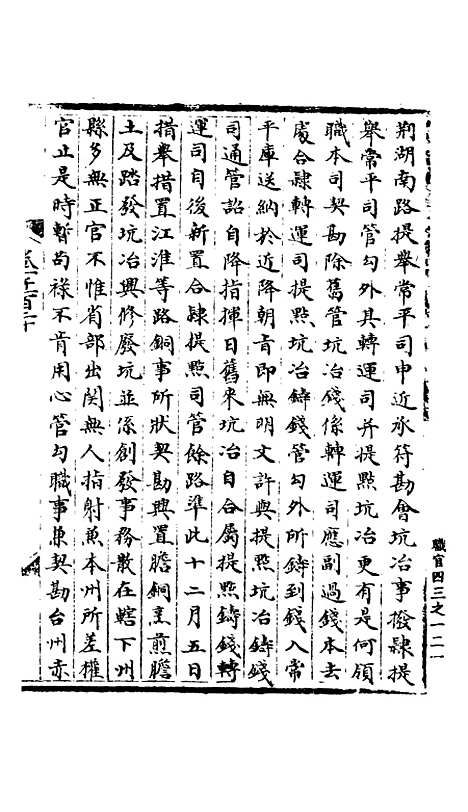 職官四三之一二一
荆湖南路提舉常平司申近承符勘會坑冶事撥隸提
舉常平司管勾外其轉運司并提點坑冶更有是何領
職本司契勘除舊管坑冶錢係轉運司應副過錢本去
處合隸轉運司提點坑冶鑄錢管勾外所鑄到錢入常
平庫送納於近降朝旨即無明文許與提點坑冶鑄錢
司通管詔自降指揮日舊來坑冶自合屬提點鑄錢轉
運司自後新置合隸提點司管餘路準此十二月五日
措舉措置江淮等路銅事所狀契勘興置膽銅烹煎膽
土及踏發坑冶興修廢坑並係創發事務散在轄下州
縣多無正官不惟省部出闕無人指射兼本州所差權
官止是時暫苟祿不肯用心管勾職事兼契勘台州赤
卷一千一百二十